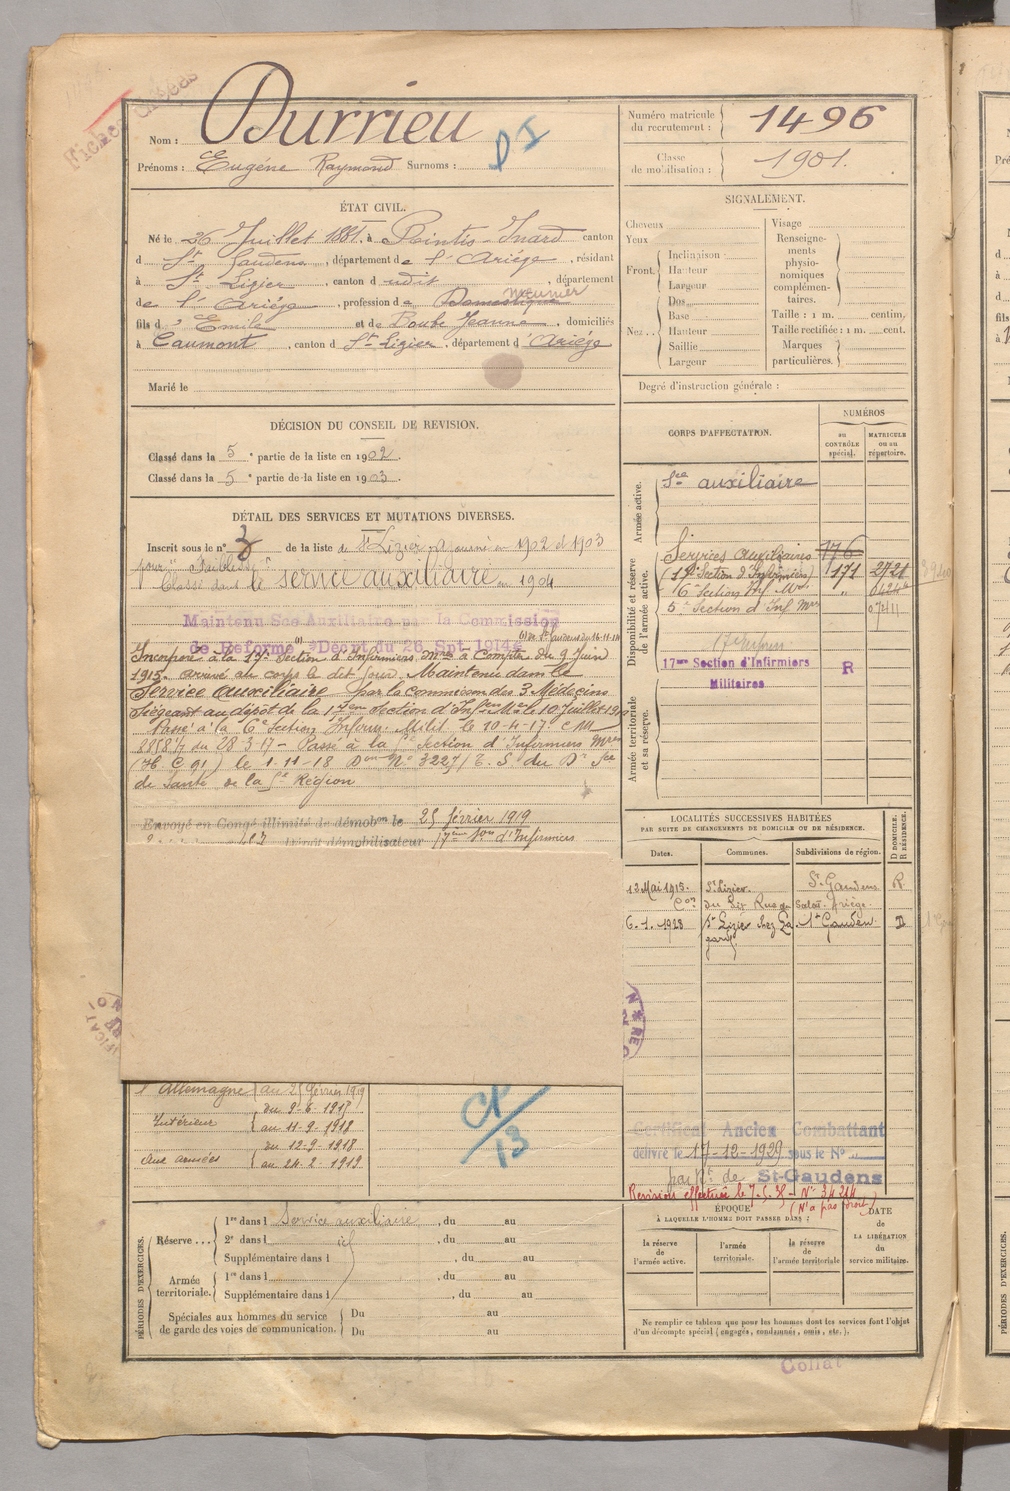 Fiches
Nom : Durrieu
Prénoms : Eugéne Raymond Surnoms :
Numéro matricule du recrutement : 1496
Classe de mobilisation : 1901.
ÉTAT CIVIL.
Né le 26 Juillet 1881. à Pointis-Inard canton
d St Gaudens, département de l'Ariége, résidant
à St Lizier, canton d udit, département
de l'Ariége, profession de Domestique meunier
fils d' Emile et de Boube Jeanne, domiciliés
à Caumont, canton d St Lizier, département d Ariége
Marié le
SIGNALEMENT.
Cheveux
Yeux
Front.
Inclinaison
Hauteur
Largeur
Nez..
Dos
Base
Hauteur
Saillie
Largeur
Visage
Renseigne-
ments
physio-
nomiques
complémen-
taires.
Taille : 1 m. centim.
Taille rectifiée : 1 m. cent.
Marques
particulières.
Degré d'instruction générale :
DÉCISION DU CONSEIL DE REVISION.
Classé dans la 5e partie de la liste en 1902.
Classé dans la 5e partie de la liste en 1903.
DÉTAIL DES SERVICES ET MUTATIONS DIVERSES.
Inscrit sous le n° 3 de la liste de St Lizier ajourné en 1902 et 1903
pour "Faiblesse"
Classé dans le service auxiliaire en 1904
Maintenu Sce Auxiliaire par la Commission
de Réforme (1) Décret du 26 Spt 1914
Incorporé à la 17e Section d'Infirmiers Mres à Compter du 9 Juin
1915. Arrivé au corps le dit jour. Maintenu dans le
Service auxiliaire par la Commission des 3 Médecins
Siégeant au dépôt de la 17eme Section d'Infers Mres le 10 Juillet
Passé à la 6e Section Infirm. Milit. le 10-4-17 C M
28 3 17 - Passé à la 5e Section d'Infirmiers Mres
le 1-11-18 Don N° 3227/ du Dr Sce
de Santé de la 5e Région
Envoyé en Congé illimité de démobon le 25 février 1919
Dépôt démobilisateur 17eme Son d'Infirmiers
CORPS D'AFFECTATION.
NUMÉROS
au
CONTRÔLE
spécial.
MATRICULE
ou au
répertoire.
Armée active.
Sce auxiliaire
Disponibilité et réserve
de l'armée active.
Services Auxiliaires 176
(17e Section d'Infirmiers) 171 2721
6e Section Inf. Mres "
5e Section d'Inf Mres
17me Section d'Infirmiers
Militaires
R
Armée territoriale
et sa réserve.
LOCALITÉS SUCCESSIVES HABITÉES
PAR SUITE DE CHANGEMENTS DE DOMICILE OU DE RÉSIDENCE.
D DOMICILE.
R RÉSIDENCE.
Dates.
Communes.
Subdivisions de région.
12 Mai 1915. St Lizier. St Gaudens R
6-1-1928 St Lizier chez La St Gaudens D
l'Allemagne au 25 février 1919
Intérieur du 9-6-1915
au 11-9-1918
Aux armées du 12-9-1918
au 24-2-1919
13
Certificat Ancien Combattant
délivré le 17-12-1929 sous le N°
St-Gaudens
Revision effectuée le
(N'a pas droit)
PÉRIODES D'EXERCICES.
Réserve...
1re dans l Service auxiliaire, du au
2e dans l id, du au
Supplémentaire dans l, du au
Armée
territoriale.
1re dans l, du au
Supplémentaire dans l, du au
Spéciales aux hommes du service
de garde des voies de communication.
Du au
Du au
ÉPOQUE
À LAQUELLE L'HOMME DOIT PASSER DANS :
la réserve
de l'armée active.
l'armée
territoriale.
la réserve
de l'armée territoriale
DATE
de
LA LIBÉRATION
du
service militaire.
Ne remplir ce tableau que pour les hommes dont les services font l'objet
d'un décompte spécial (engagés, condamnés, omis, etc.).
Collat
PÉRIODES D'EXERCICES.